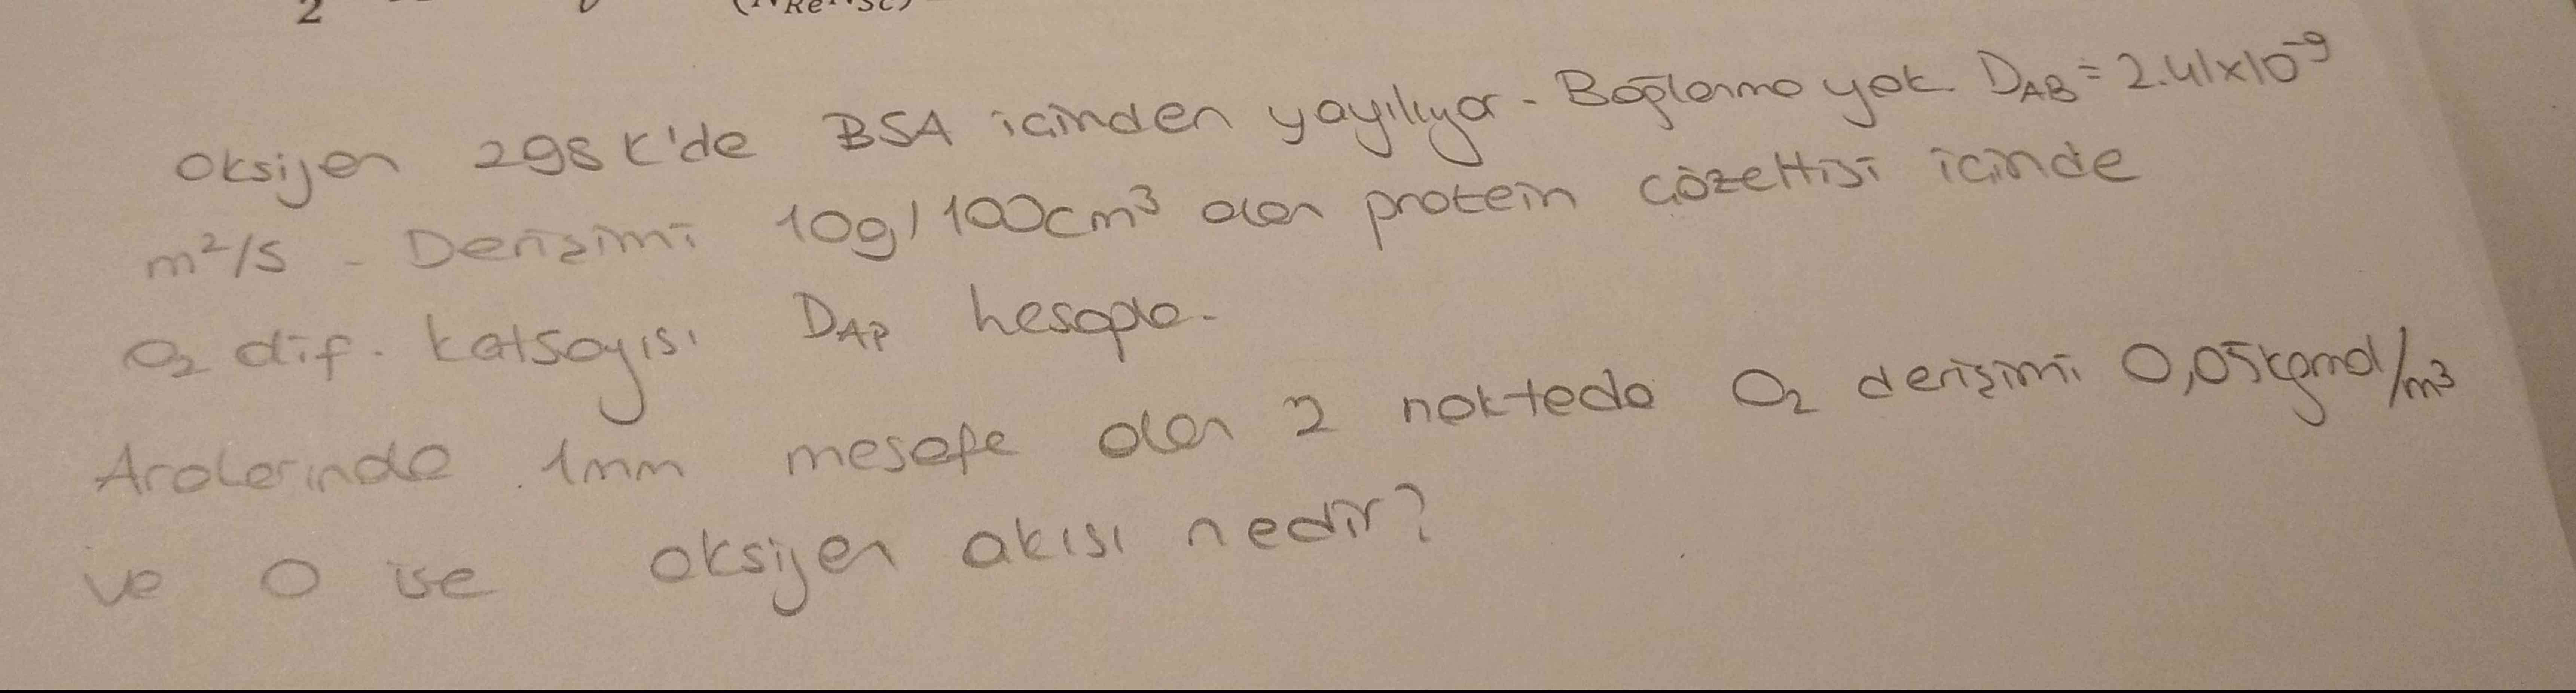 2 (NReNSc)
Oksijen 298 K'de BSA içinden yayılıyor. Bağlanma yok. DAB = 2.41x10⁻⁹
m²/s. Derişimi 10g/100cm³ olan protein çözeltisi içinde
O₂ dif. katsayısı DAP hesapla.
Aralarında 1mm mesafe olan 2 noktada O₂ derişimi 0,05kgmol/m³
ve 0 ise oksijen akısı nedir?